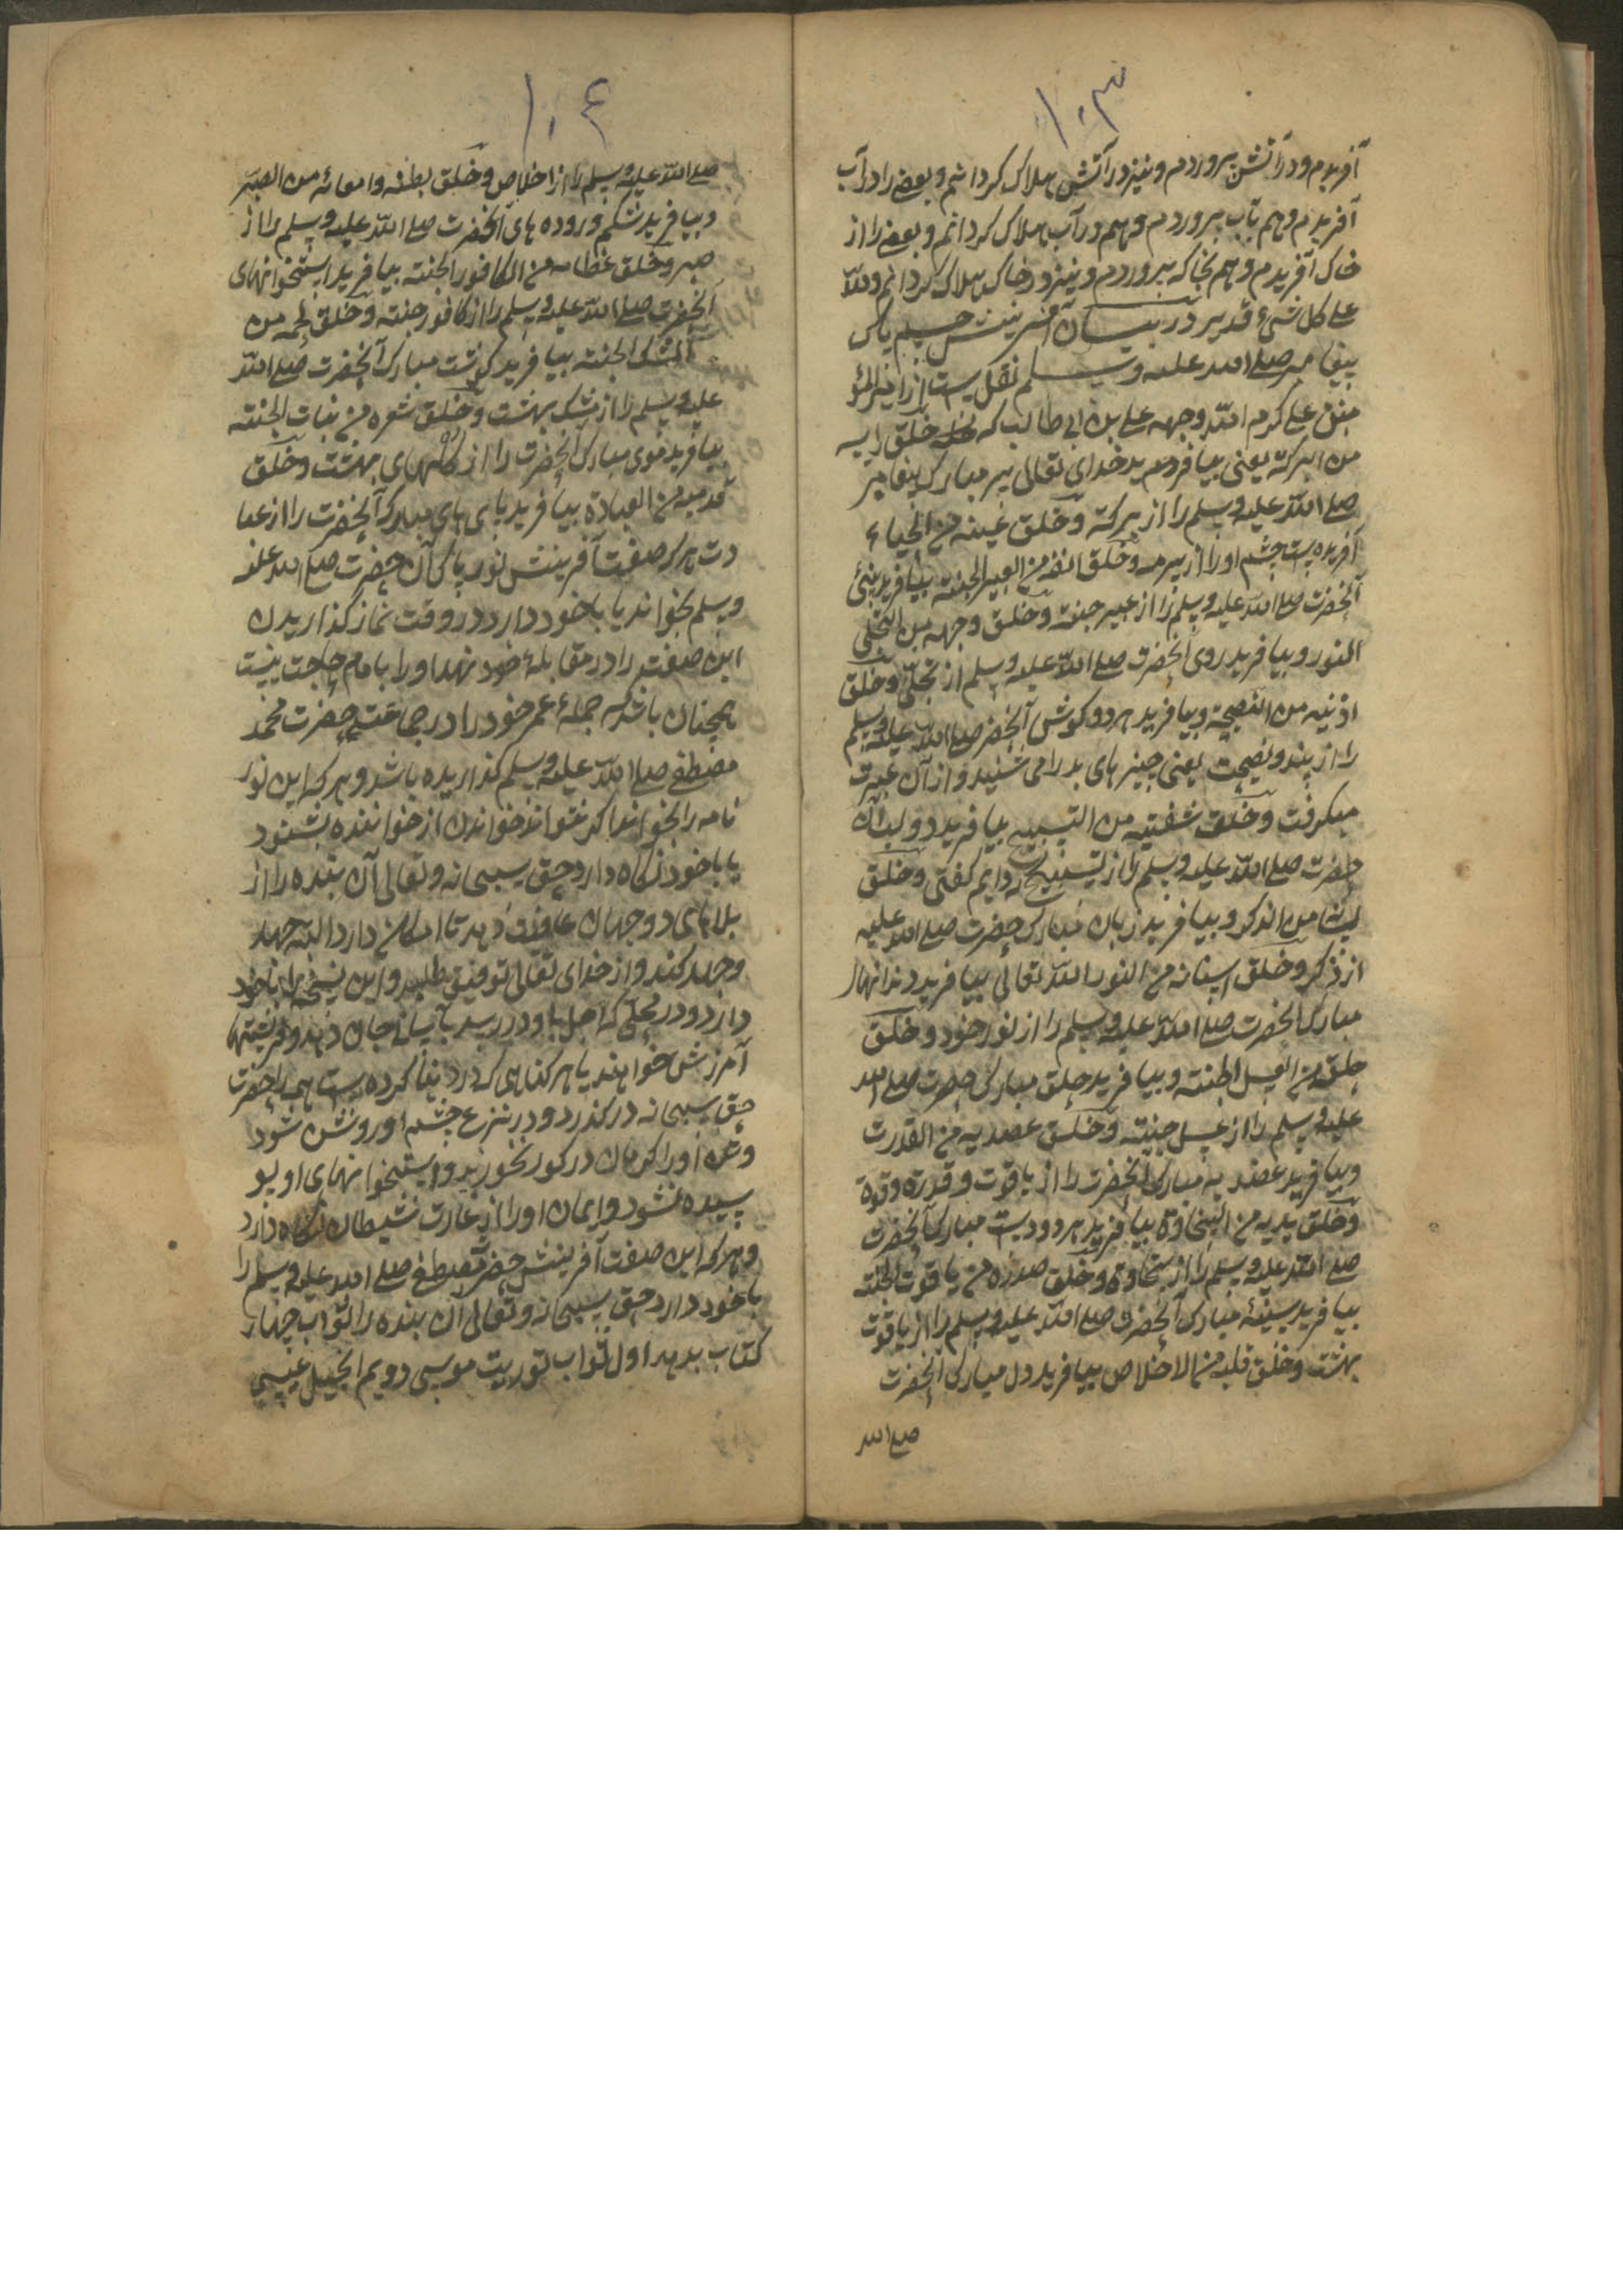 ١٠٣
آفریدم و در آتش بپروردم و نیز در آتش هلاک کردانم و بعضی را در آب
آفریدم و هم بآب بپروردم و هم در آب هلاک کردانم و بعضی را از
خاک آفریدم و هم بخاک بپروردم و نیز در خاک هلاک کردانم والله
علی کل شیء قدیر در بیان آفرینش جسم پاک
پیغامبر صلی الله علیه وسلم نقل است از امیر المؤ
منین علی کرم الله وجهه علی بن ابی طالب که خلق رأسه
من البرکة یعنی بیافرید خدای تعالی سر مبارک پیغامبر
صلی الله علیه وسلم را از برکة وخلق عینه من الحیاء
آفریده است چشم او را از سرمه وخلق انفه من العبیر الجنة بیافرید بینی
آنحضرت صلی الله علیه وسلم را از عبیر جنة وخلق وجهه من التجلی
النور و بیافرید روی آنحضرت صلی الله علیه وسلم از تجلی وخلق
اذنیه من النصیحة و بیافرید هر دو کوش آنحضرت صلی الله علیه وسلم
را از پند و نصیحت یعنی چیزهای بد را می شنید و از آن عبرت
میکرفت وخلق شفتیه من التسبیح بیافرید دو لبان
حضرت صلی الله علیه وسلم را از تسبیح که دایم کفتی وخلق
لسانه من الذکر و بیافرید زبان مبارک حضرت صلی الله علیه
از ذکر وخلق اسنانه من النور الله تعالی بیافرید دندانهاء
مبارک آنحضرت صلی الله علیه وسلم را از نور خود وخلق
حلقه من العسل الجنة و بیافرید حلق مبارک حضرت صلی الله
علیه وسلم را از عسل جنة وخلق عضدیه من القدرت
و بیافرید عضدیه مبارک آنحضرت را از یاقوت و قدرة وقوة
وخلق یدیه من السخاوة بیافرید هر دو دست مبارک آنحضرت
صلی الله علیه وسلم را از سخاوة وخلق صدره من یاقوت الجنة
بیافرید سینهٔ مبارک آنحضرت صلی الله علیه وسلم را از یاقوت
بهشت وخلق قلبه من الاخلاص بیافرید دل مبارک آنحضرت
صلی الله
١٠٤
صلی الله علیه وسلم را از اخلاص وخلق بطنه وامعائه من الصبر
و بیافرید شکم و روده های آنحضرت صلی الله علیه وسلم را از
صبر وخلق عظامه من الکافور الجنة بیافرید استخوانهای
آنحضرت صلی الله علیه وسلم را از کافور جنة وخلق لحمه من
المشک الجنة بیافرید کوشت مبارک آنحضرت صلی الله
علیه وسلم را از مشک بهشت وخلق شعره من نبات الجنة
بیافرید موی مبارک آنحضرت را از کاههای بهشت وخلق
قدمیه من العبادة بیافرید پای های مبارک آنحضرت را از عبا
دت هر که صفت آفرینش نور پاک آن حضرت صلی الله علیه
وسلم بخواند یا باخود دارد در وقت نماز کذاریدن
این صفت را در مقابلهٔ خود نهد او را بامام حاجت نیست
همچنان باشد که جملهٔ عمر خود را در جماعت حضرت محمد
مصطفی صلی الله علیه وسلم کذاریده باشد و هر که این نور
نامه را بخواند اکر نتواند خواندن از خواننده بشنود
یا باخود نکاه دارد حق سبحانه وتعالی آن بنده را از
بلاهای دوجهان عافیت دهد تا امکان دارد البته جهد
وجد کند و از خدای تعالی توفیق طلبد و این نسخه را باخود
دارد و در محلی که اجل باو در رسد بآسانی جان دهد و فرشتها
آمرزش خواهند یا هر کناهی که در دنیا کرده است همه را حضرت
حق سبحانه درکذرد و در نزع چشم او روشن شود
و تن او را کرمان در کور نخورند و استخوانهای او پو
سیده نشود و ایمان او را از غارت شیطان نکاه دارد
و هر که این صفت آفرینش حضرت مصطفی صلی الله علیه وسلم را
باخود دارد حق سبحانه وتعالی آن بنده را ثواب چهار
کتاب بدهد اول ثواب توریت موسی دویم انجیل عیسی